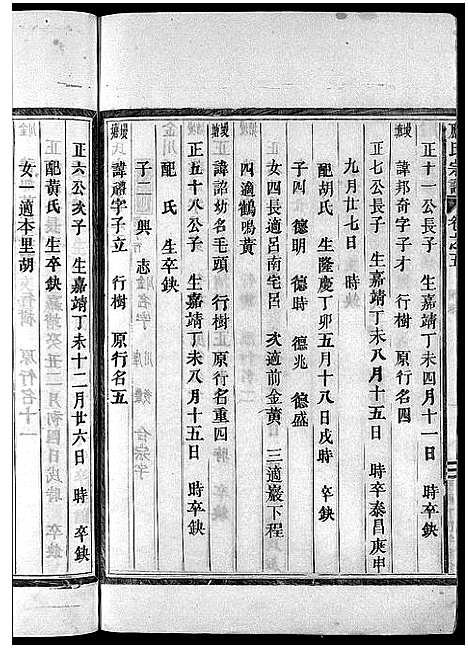 氏宗譜 卷之五
正十一公長子 生嘉靖丁未四月十一日 時 卒鈌
諱邦奇字子才 行樹 原行名四
正七公長子 生嘉靖丁未八月十五日 時卒泰昌庚申
九月廿七日 時鈌
配胡氏 生隆慶丁卯五月十八日戌時 卒鈌
子四 德明 德時 德兆 德盛
女四長適呂南宅呂 次適前金黃 三適巖下程
四適鶴鳴黃
諱詔幼名毛頭 行樹 原行名重四
正五十八公子 生嘉靖丁未八月十五日 時卒鈌
配 氏 生卒鈌
子二 興 志
諱禮字子立 行樹 原行名五
正六公次子 生嘉靖丁未十二月廿六日 時 卒鈌
配黃氏 生卒鈌
女一適本里胡